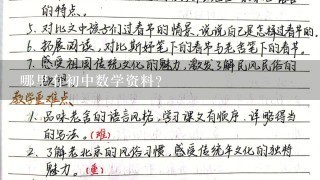 的特点。
5. 对比文中孩子们过春节的情景,说说自己是怎样过春节的。
6. 拓展阅读,对比斯好笔下的春节与老舍笔下的春节。
7. 感受祖国传统文化的魅力,激发了解民风民俗的
哪里有初中数学资料?
教学重难点
1. 品味老舍的语言风格,学习课文有顺序、详略得当
的写法。(难)
2. 了解老北京的风俗习惯,感受传统年文化的独特
魅力。(重)